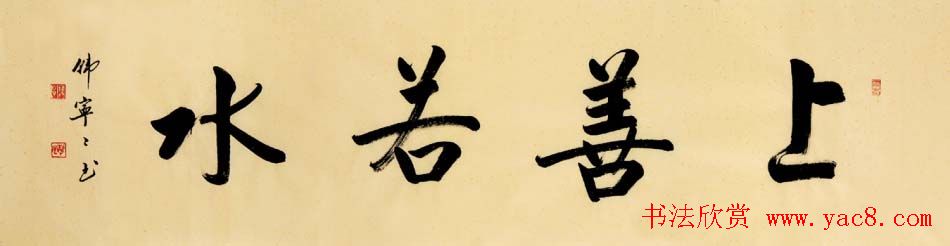 上善若水
寧
书法欣赏 www.yac8.com